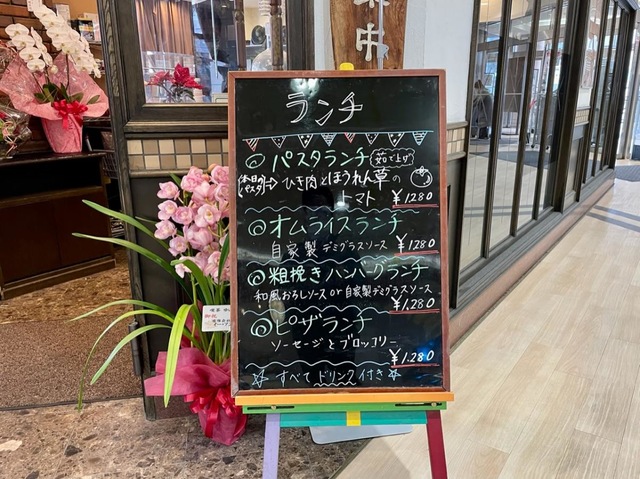 中
ランチ
◎パスタランチ 茹で上げ
本日のパスタ→ひき肉とほうれん草の
トマト ¥1.280
◎オムライスランチ
自家製デミグラスソース ¥1.280
◎粗挽きハンバーグランチ
和風おろしソース or 自家製デミグラスソース
¥1.280
◎ピザランチ
ソーセージとブロッコリー
¥1.280
☆すべてドリンク付き☆